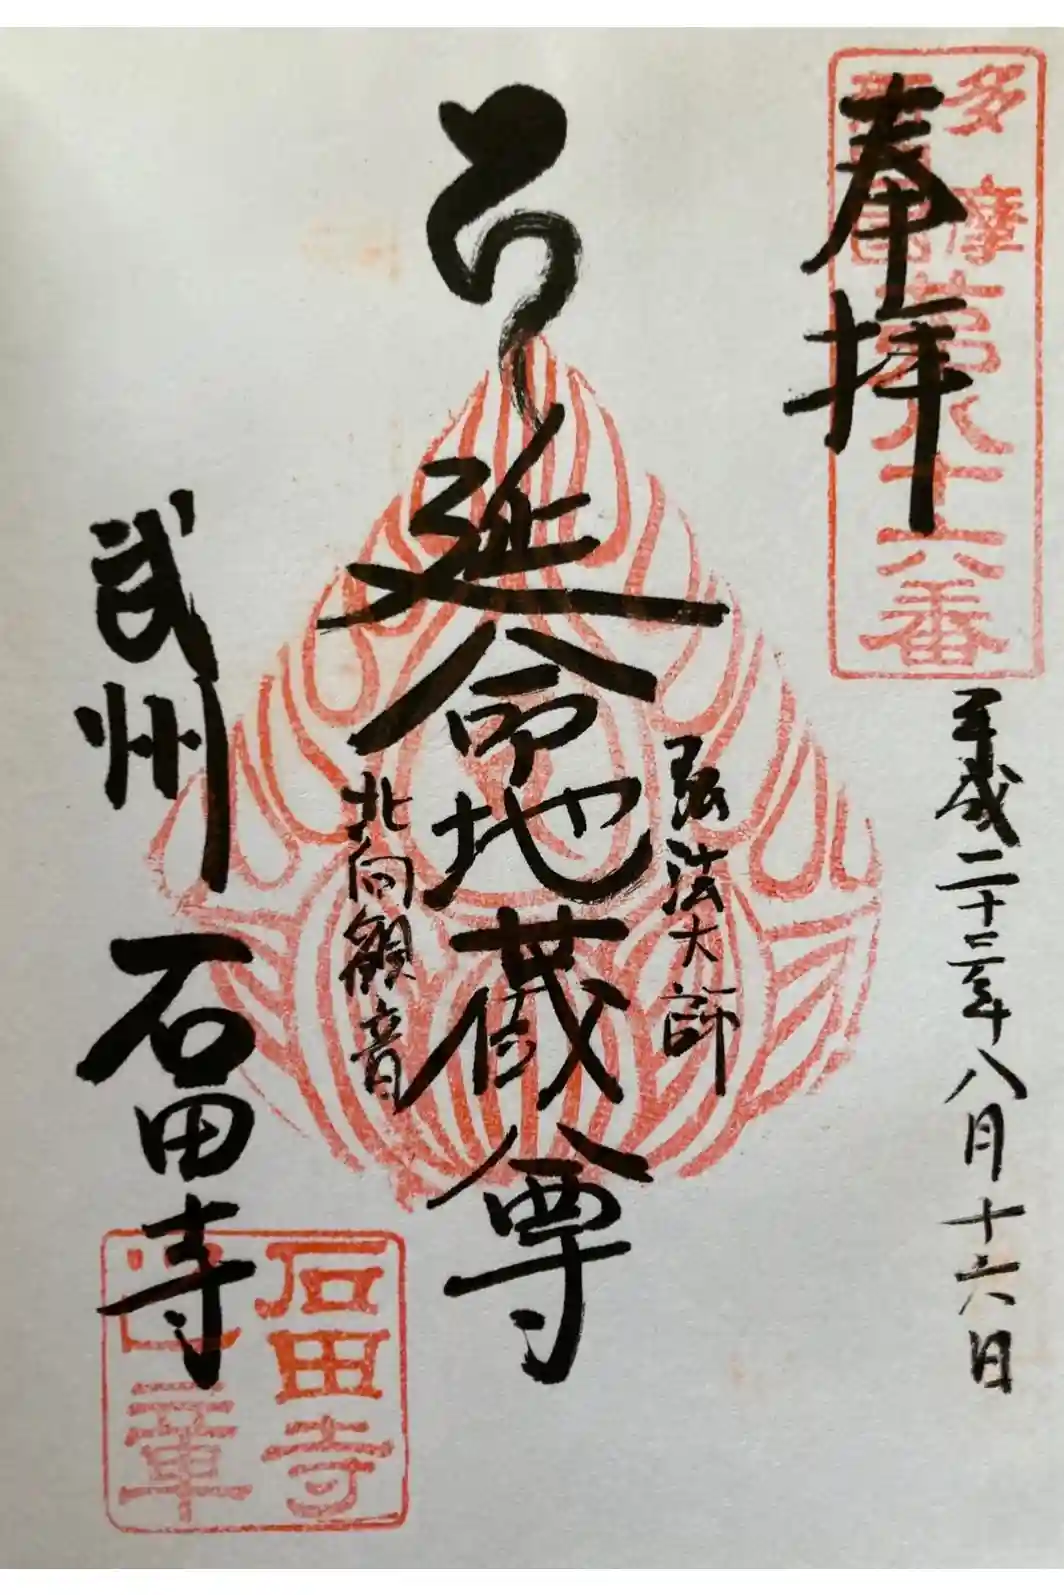 奉拝
多摩
第六十六番
平成二十三年八月十六日
弘法大師
延命地蔵尊
北向観音
武州 石田寺
石田寺